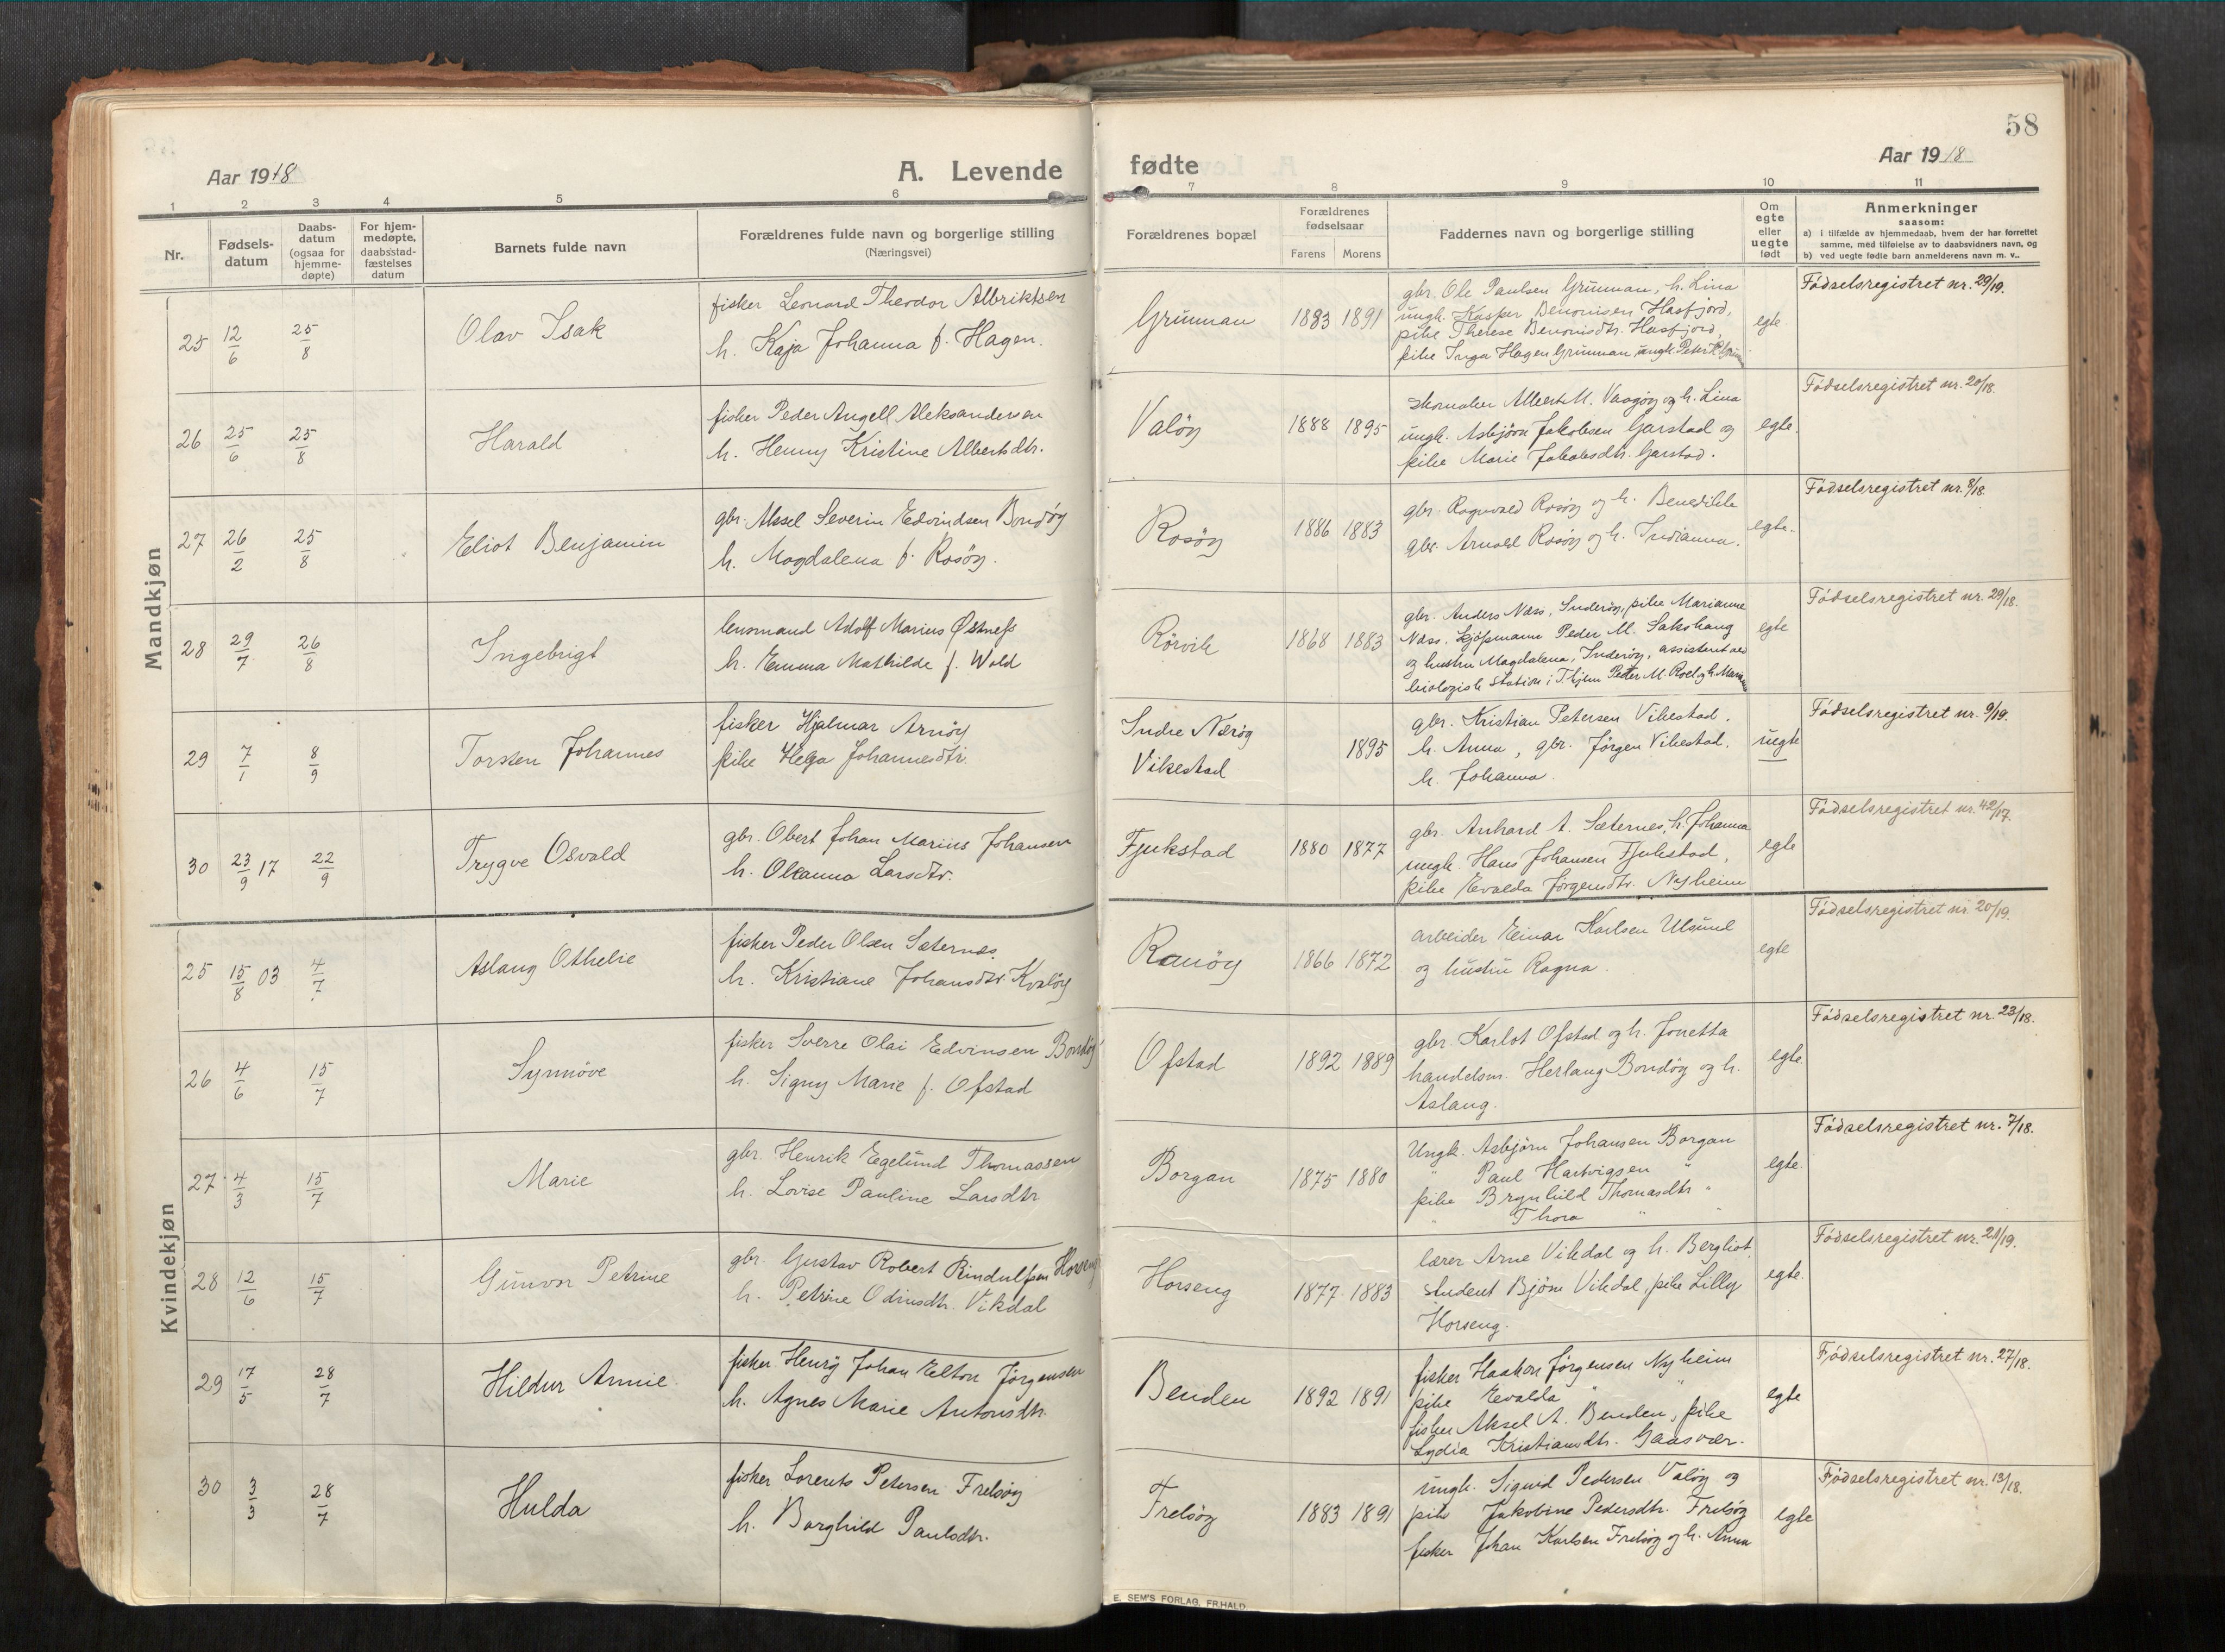 58
Aar 1918
A. Levende
fødte
Aar 1918
1 2 3 4 5 6 7 8 9 10 11
Nr.
Fødsels-
datum
Daabs-
datum
(ogsaa for
hjemme-
døpte)
For hjem-
medøpte,
daabsstad-
fæstelses
datum
Barnets fulde navn
Forældrenes fulde navn og borgerlige stilling
(Næringsvei)
Forældrenes bopæl
Forældrenes
fødselsaar
Farens Morens
Faddernes navn og borgerlige stilling
Om
egte
eller
uegte
født
Anmerkninger
saasom:
a) i tilfælde av hjemmedaab, hvem der har forrettet
samme, med tilføielse av to daabsvidners navn, og
b) ved uegte fødte barn anmelderens navn m. v..
Mandkjøn
25 12/6 25/8 Olav Isak
fisker Leonard Theodor Albriktsen
h. Kaja Johanna f. Hagen.
Grünnan 1883 1891
gbr. Ole Paulsen Grünnan, h. Lina
ungk. Kasper Benonisen Hasfjord,
pike Therese Benonisdtr. Hasfjord,
pike Inga Hagen Grünnan, ungk. Peter
egte
Fødselsregistret nr. 29/19.
26 25/6 25/8 Harald
fisker Peder Angell Aleksandersen
h. Henny Kristine Albertsdtr.
Valöy 1888 1895
skomaker Albert M. Vaagöy og h. Lina
ungk. Asbjörn Jakobsen Garstad og
pike Marie Jakobsdtr. Garstad.
egte.
Fødselsregistret nr. 20/18.
27 26/2 25/8 Eliot Benjamin
gbr. Aksel Severin Edvindsen Bondöy
h. Magdalena f. Rosöy.
Rosöy 1886 1883
gbr. Ragnvald Rosöy og h. Benedikte
gbr. Arnold Rosöy og h. Indianna.
egte.
Fødselsregistret nr. 8/18.
28 29/7 26/8 Ingebrigt
lensmand Adolf Marius Østnefs
h. Emma Mathilde f. Wold
Rörvik 1868 1883
gbr. Anders Næss, Inderöy, pike Marianne
Næss, kjöpmann Peder M. Sakshaug
og hustru Magdalena, Inderöy, assistent ved
biologisk station i Thjem Peder M. Roel og h.
egte
Fødselsregistret nr. 29/18.
29 7/1 8/9 Torsten Johannes
fisker Hjalmar Arnöy
pike Helga Johannesdtr.
Indre Næröy
Vikestad
1895
gbr. Kristian Petersen Vikestad.
h. Anna, gbr. Jörgen Vikestad.
h. Johanna.
uegte
Fødselsregistret nr. 9/19.
30 23/9 17 22/9 Trygve Osvald
gbr. Obert Johan Marius Johansen
h. Olianna Larsdtr.
Fjukstad 1880 1877
gbr. Anhard A. Sæternes, h. Johanna
ungk. Hans Johansen Fjukstad,
pike Evalda Jörgensdtr. Nyheim
egte
Fødselsregistret nr. 42/17.
Kvindekjøn
25 15/8 03 4/7 Aslaug Othelie
fisker Peder Olsen Sæternes.
h. Kristiane Johansdtr. Kvalöy
Ranöy 1866 1872
arbeider Einar Karlsen Ulsund
og hustru Ragna.
egte
Fødselsregistret nr. 20/19.
26 4/6 15/7 Synnöve
fisker Sverre Olai Edvinsen Bondöy
h. Signy Marie f. Ofstad
Ofstad 1892 1889
gbr. Karlot Ofstad og h. Jonetta
handelsm. Herlaug Bondöy og h.
Aslaug.
egte.
Fødselsregistret nr. 23/18.
27 4/3 15/7 Marie
gbr. Henrik Egelund Thomassen
h. Lovise Pauline Larsdtr
Borgan 1875 1880
Ungk. Asbjörn Johansen Borgan
" Paul Hartvigsen "
pike Brynhild Thomasdtr "
" Thora " "
egte.
Fødselsregistret nr. 7/18.
28 12/6 15/7 Gunvor Petrine
gbr. Gustav Robert Rindulfsen Horseng
h. Petrine Odinsdtr. Vikdal
Horseng 1877 1883
lærer Arne Vikdal og h. Bergliot,
student Bjöm Vikdal, pike Lilly
Horseng.
egte.
Fødselsregistret nr. 21/19.
29 17/5 28/7 Hildur Annie.
fisker Henrÿ Johan Elton Jörgensen
h. Agnes Marie Antonsdtr.
Benden 1892 1891
fisker Haakon Jörgensen Nyheim
pike Evalda " "
fisker Aksel A. Benden, pike
Lydia Kristiansdtr. Gaasvær.
egte
Fødselsregistret nr. 27/18.
30 3/3 28/7 Hulda
fisker Lorents Petersen Frelsöy
h. Borghild Paulsdtr.
Frelsöy 1883 1891
ungk. Sigurd Pedersen Valöy og
pike Jakobine Pedersdtr. Frelsöy
fisker Johan Karlsen Frelsöy og h. Anna
egte
Fødselsregistret nr. 13/18.
E. SEM'S FORLAG, FR.HALD.